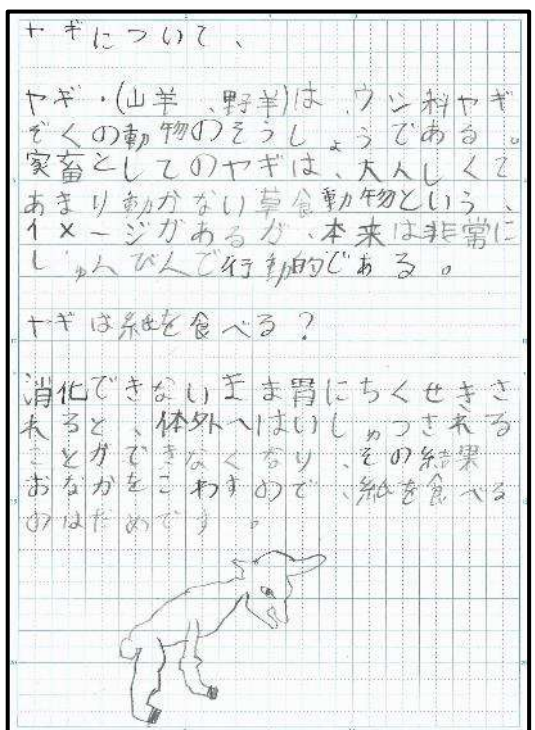 ヤギについて、
ヤギ・(山羊、野羊)は、ウシ科ヤギ
ぞくの動物のそうしょうである。
家畜としてのヤギは、大人しくて
あまり動かない草食動物という、
イメージがあるが、本来は非常に
しゅんびんで行動的である。
ヤギは紙を食べる?
消化できないまま胃にちくせきさ
れると、体外へはいしゅつされる
ことができなくなり、その結果
おなかをこわすので、紙を食べる
のはだめです。